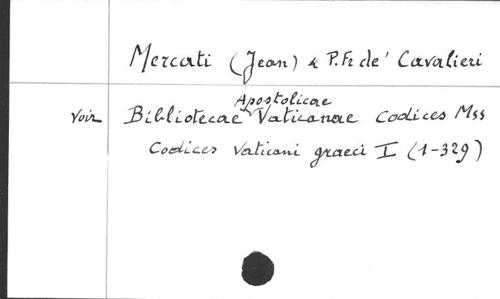 Mercati (Jean) & P. Fr de' Cavalieri
voir Bibliotecae Apostolicae Vaticanae Codices Mss
Codices Vaticani graeci I (1-329)